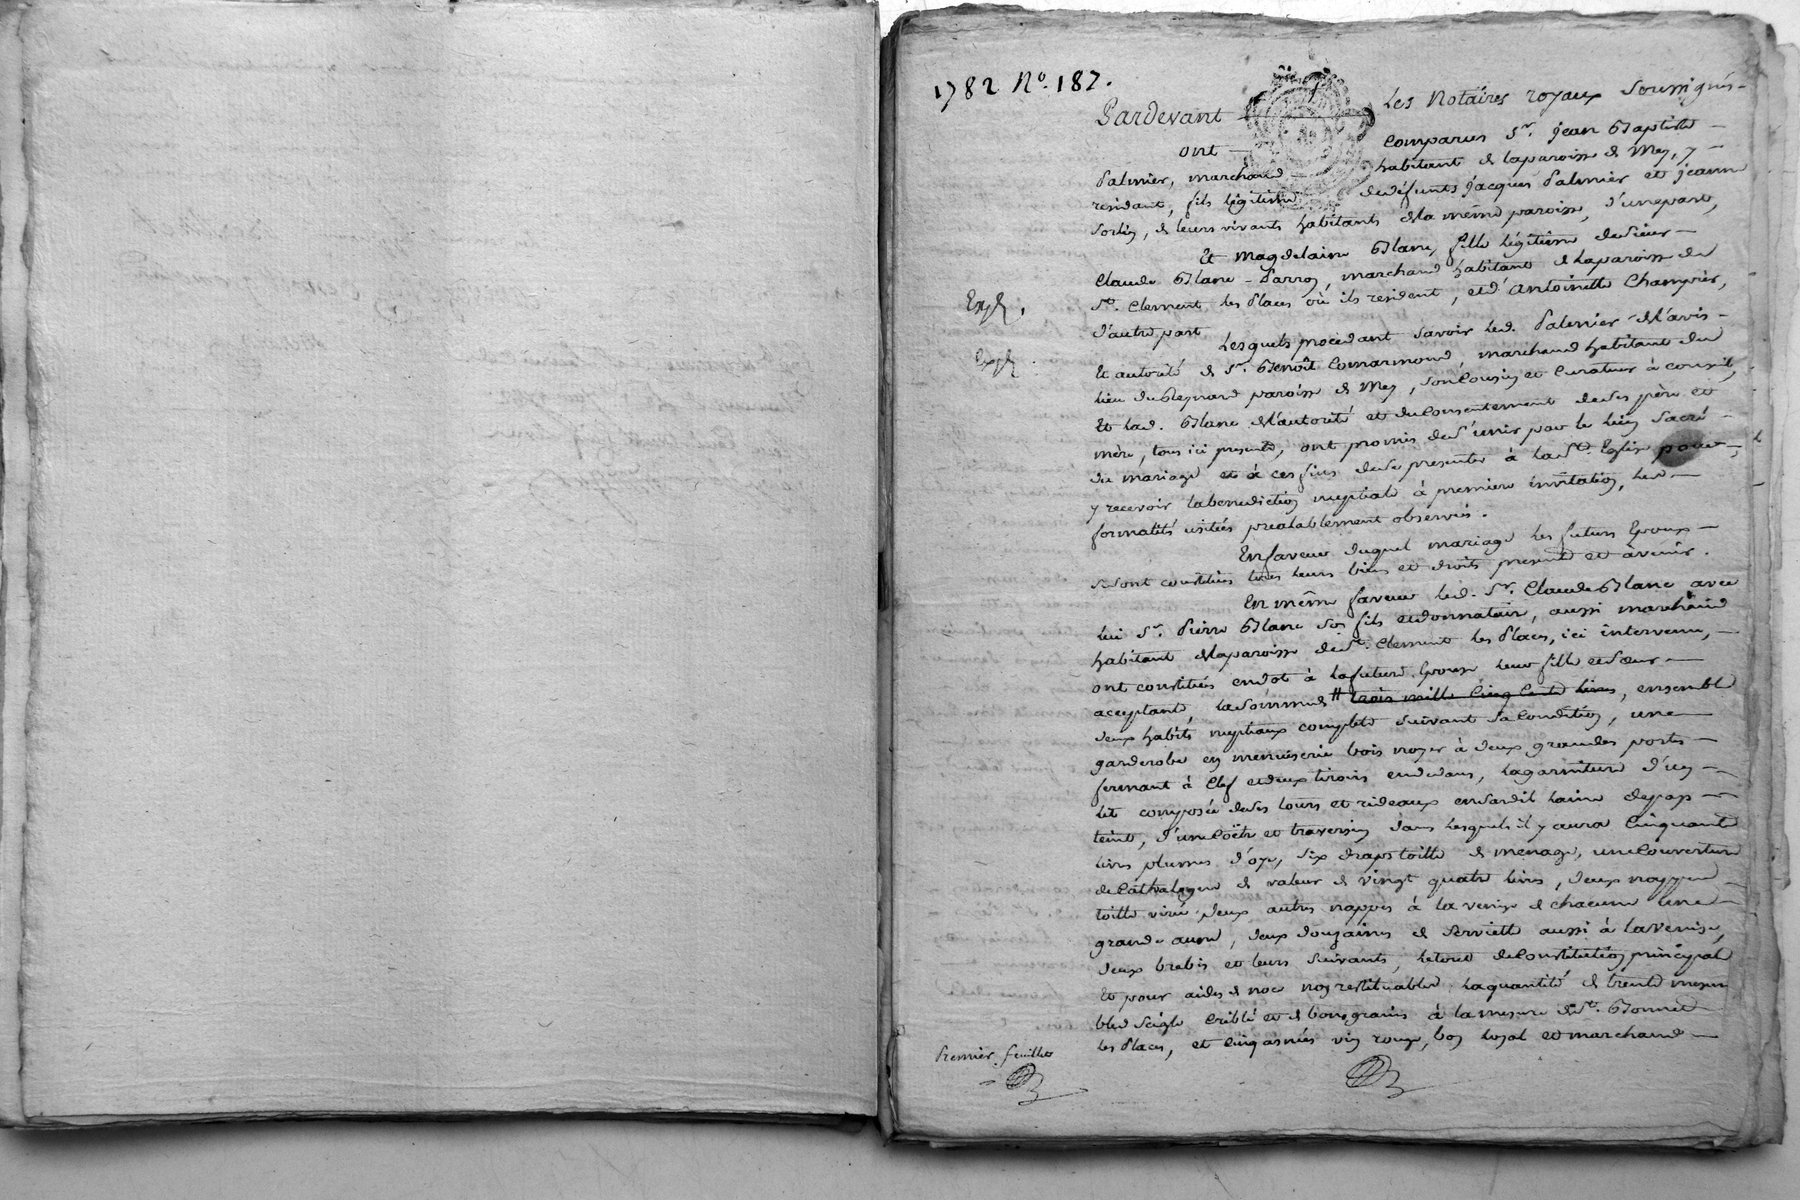 1782 No. 187.
Pardevant Les Notaires royaux Soussignés
ont Comparus Sr. jean Baptiste
Palmier, marchand habitant de laparoisse de Mey, y
residant, fils légitime dedéfunts jacques Palmier et jeanne
de leurs vivants habitants dela même paroisse, d'unepart,
Et Magdelaine Blanc, fille légitime dusieur
Claude Blanc-Parron, marchand habitant de laparoisse de
St. Clement les Places où ils resident, etd'antoinette Champier,
d'autre part
Expé.
Lesquels procédant savoir led. Palmier de l'avis
Expé.
Et autorité de Sr. Benoît Comarmond, marchand habitant du
lieu paroisse de Mey, son Cousin et Curateur à conseil,
Et lad. Blanc de l'autorité et du Consentement deses père et
mère, tous ici presents, ont promis de s'unir par le lien Sacré
du mariage et à ces fins dese presenter à la Ste. Eglise pour
y recevoir labenediction nuptiale à premiere invitation, les
formalités usitées préalablement observées.
En faveur duquel mariage les futurs Epoux
sesont constitués tous leurs biens et droits presents et avenir.
En même faveur led. Sr. Claude Blanc avec
lui Sr. Pierre Blanc son fils etdonnataire, aussi marchand
habitant delaparoisse de St. Clement les Places, ici intervenu,
ont constitués endot à lafuture Epouse leur fille etsœur
acceptante, lasomme de # trois mille Cinq Cents livres, ensemble
deux habits nuptiaux complets suivant sa Condition, une
garderobe en menuiserie bois noyer à deux grandes portes
fermant à Clef etdeux tiroirs endedans, lagarniture d'un
lit composée deses tours et rideaux en laine
teint, d'une Coëtre et traversin dans lesquels il y aura Cinquante
livres plumes d'oye, six draps toille de menage, une Couverture
de Cathalogne de valeur de vingt quatre livres, deux nappes
toille deux autres nappes à la venise de chacune une
grande aune, deux douzaines de serviette aussi à la venise,
deux brebis et leurs suivants, letout de Constitution principale
Et pour aides de noce non restituables, laquantité de trente mesures
bled Seigle Criblé et de bons grains à la mesure de St. Bonnet
les Places, et Cinq asnées vin rouge, bon loyal et marchand
Premier feuillet